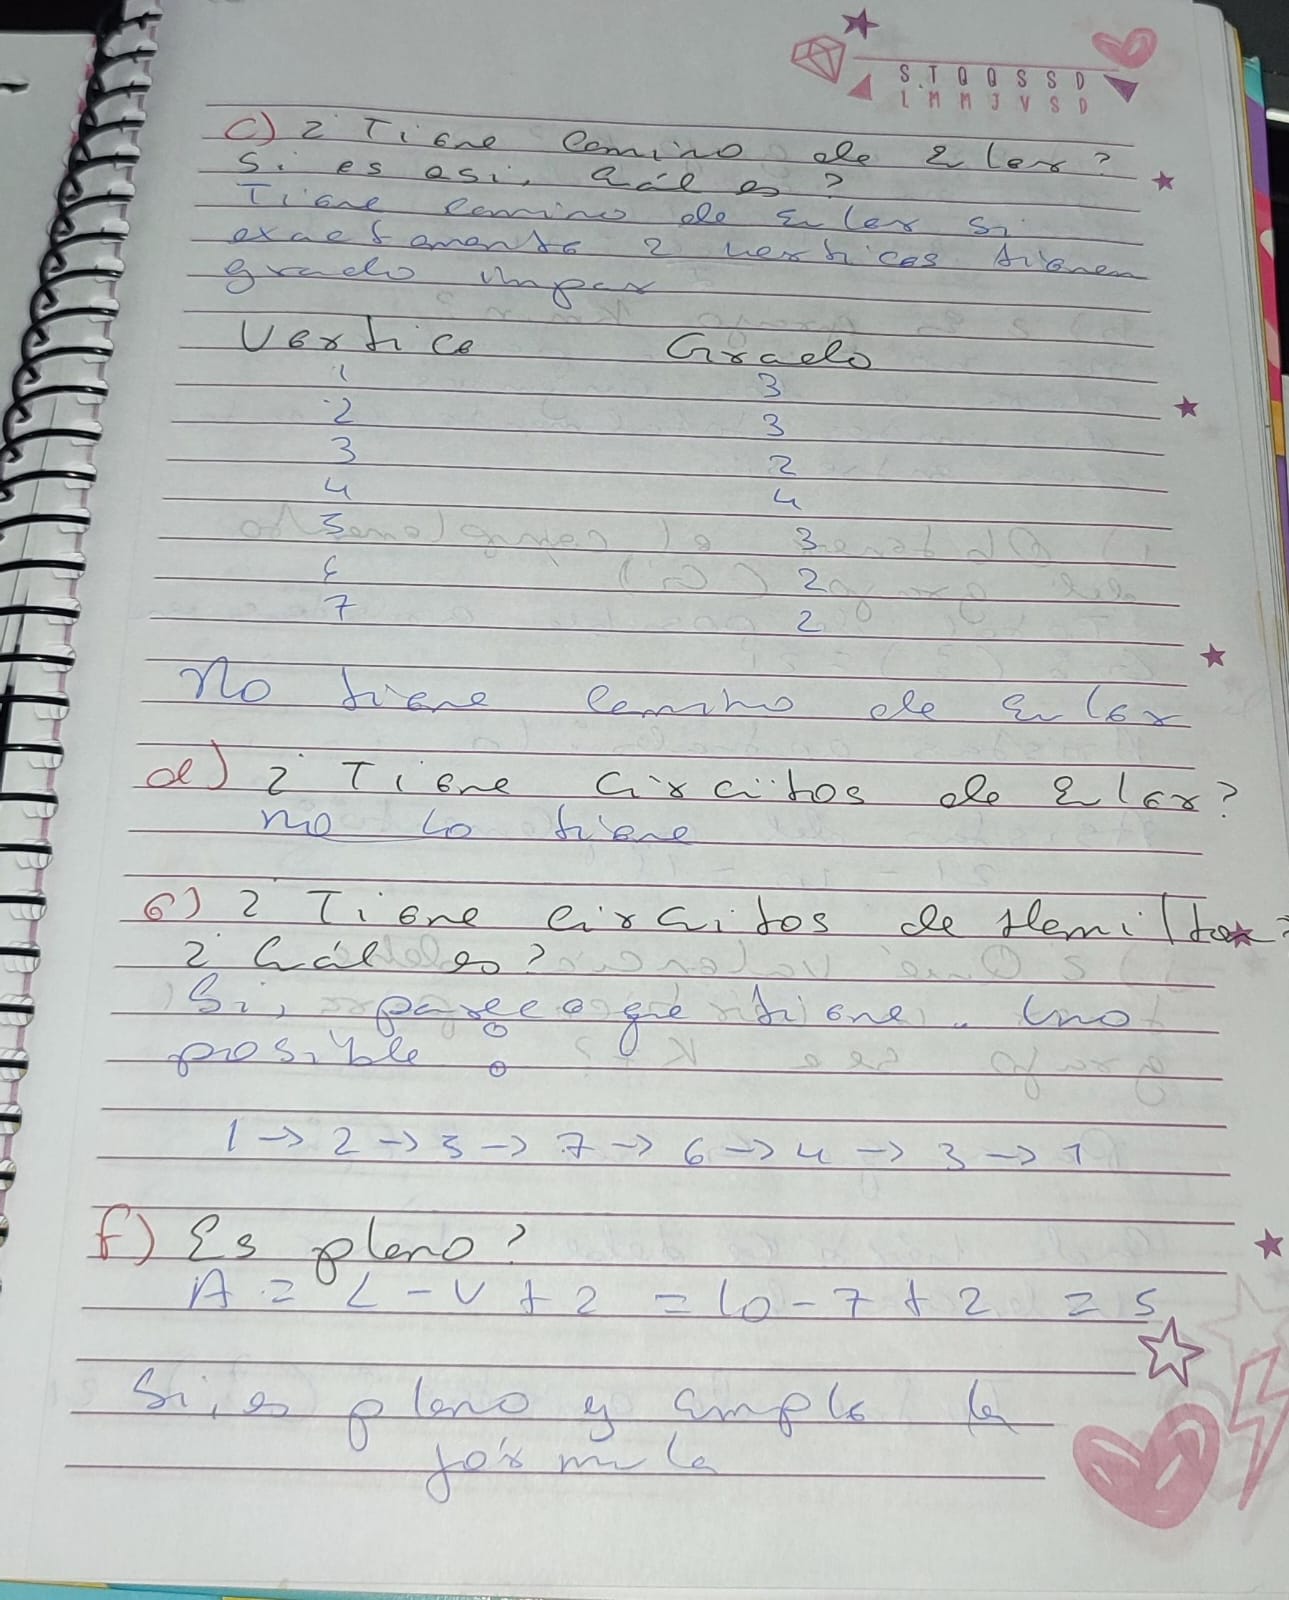 S T Q Q S S D
L M M J V S D
c) ¿Tiene camino de Euler?
Si es asi, cuál es?
Tiene camino de Euler si
exactamente 2 vertices tienen
grado impar
Vertice Grado
1 3
2 3
3 2
4 4
5 3
6 2
7 2
No tiene camino de Euler
d) ¿Tiene circuitos de Euler?
no lo tiene
e) ¿Tiene circuitos de Hamilton?
¿Cuál es?
Si, parece que tiene. Uno
posible:
1 → 2 → 5 → 7 → 6 → 4 → 3 → 1
f) Es plano?
A = L - V + 2 = 10 - 7 + 2 = 5
Si, es plano y cumple la
fórmula